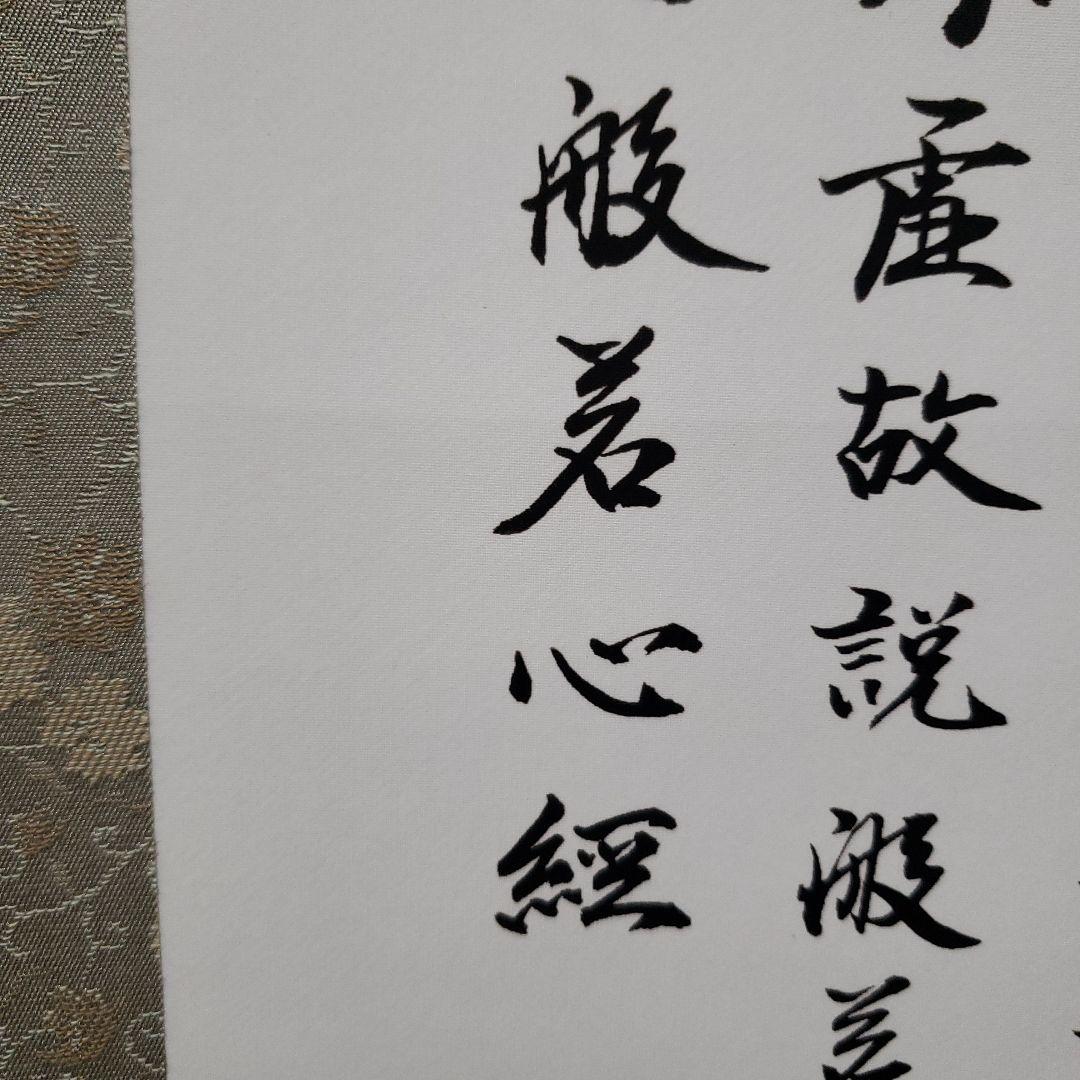 虛故說般若
般若心經